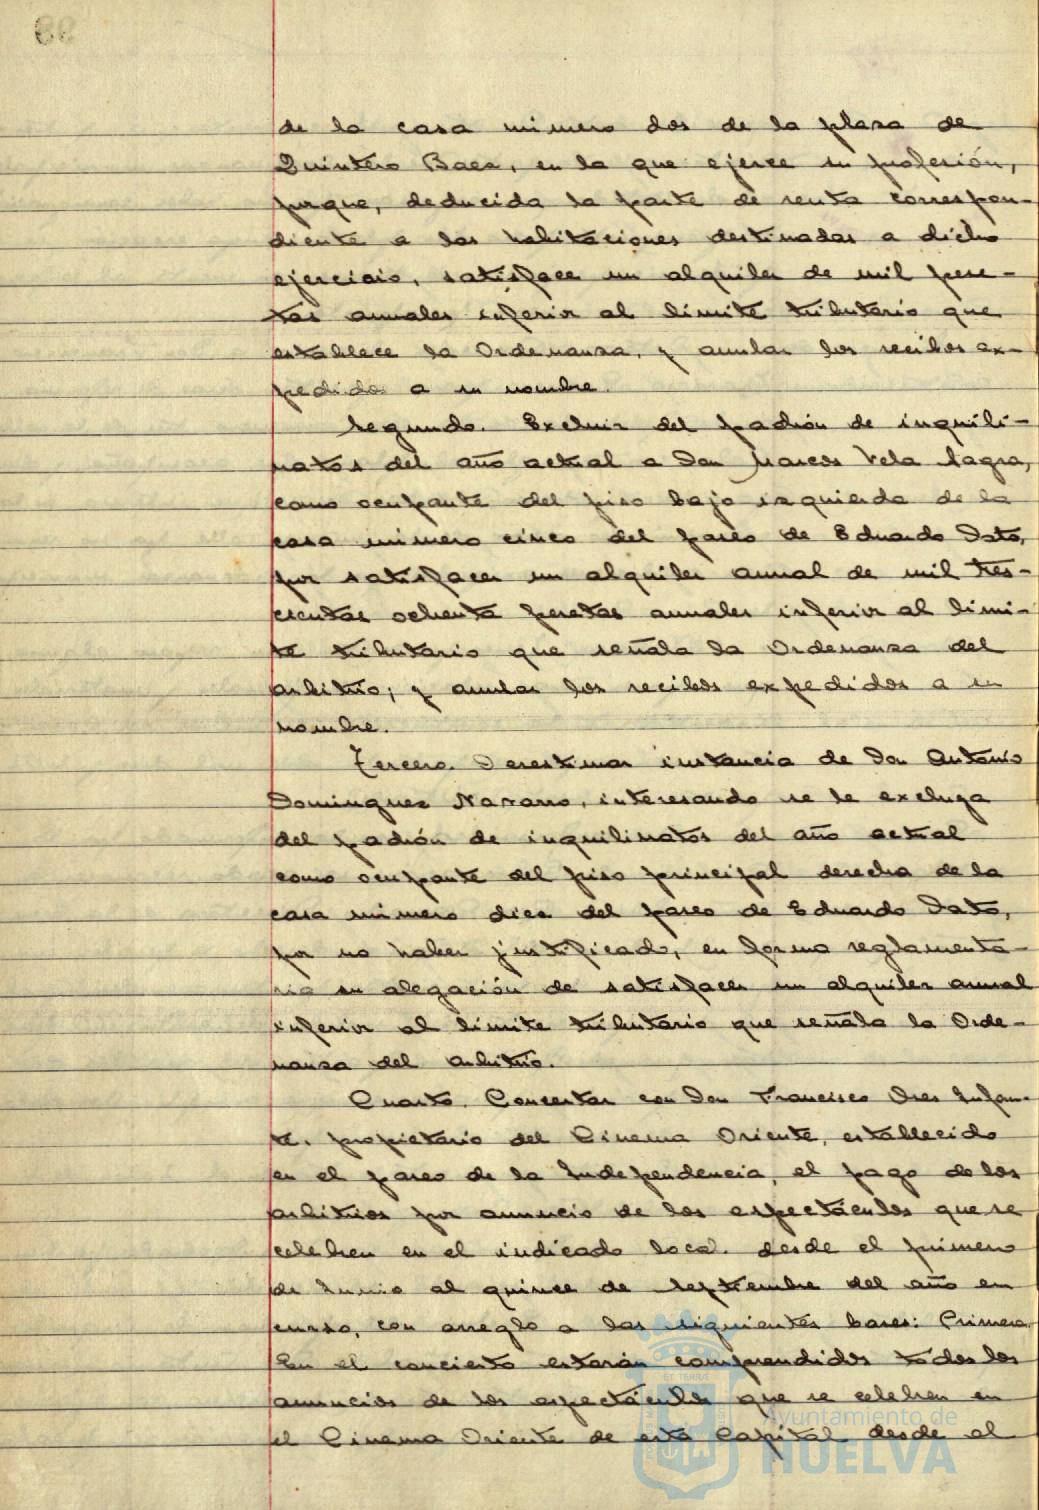 de la casa número dos de la plaza de
Quintero Baez, en la que ejerce su profesión,
porque, deducida la parte de renta correspon-
diente a las habitaciones destinadas a dicho
ejercicio, satisface un alquiler de mil pese-
tas anuales inferior al límite tributario que
establece la Ordenanza, y anular los recibos ex-
pedidos a su nombre.
Segundo. Excluir del padrón de inquili-
natos del año actual a Don Marcos Vela Sagra,
como ocupante del piso bajo izquierda de la
casa número cinco del paseo de Eduardo Dato,
por satisfacer un alquiler anual de mil tres-
cientas ochenta pesetas anuales inferior al lími-
te tributario que señala la Ordenanza del
arbitrio; y anular los recibos expedidos a su
nombre.
Tercero. Desestimar instancia de Don Antonio
Domínguez Navarro, interesando se le excluya
del padrón de inquilinatos del año actual
como ocupante del piso principal derecha de la
casa número diez del paseo de Eduardo Dato,
por no haber justificado, en forma reglamenta-
ria su alegación de satisfacer un alquiler anual
inferior al límite tributario que señala la Orde-
nanza del arbitrio.
Cuarto. Concertar con Don Francisco Infan-
te, propietario del Cinema Oriente, establecido
en el paseo de la Independencia, el pago de los
arbitrios por anuncio de los espectáculos que se
celebren en el indicado local desde el primero
de Junio al quince de Septiembre del año en
curso, con arreglo a las siguientes bases: Primera
En el concierto estarán comprendidos todos los
anuncios de los espectáculos que se celebren en
el Cinema Oriente de esta Capital desde el
98
Ayuntamiento de
HUELVA